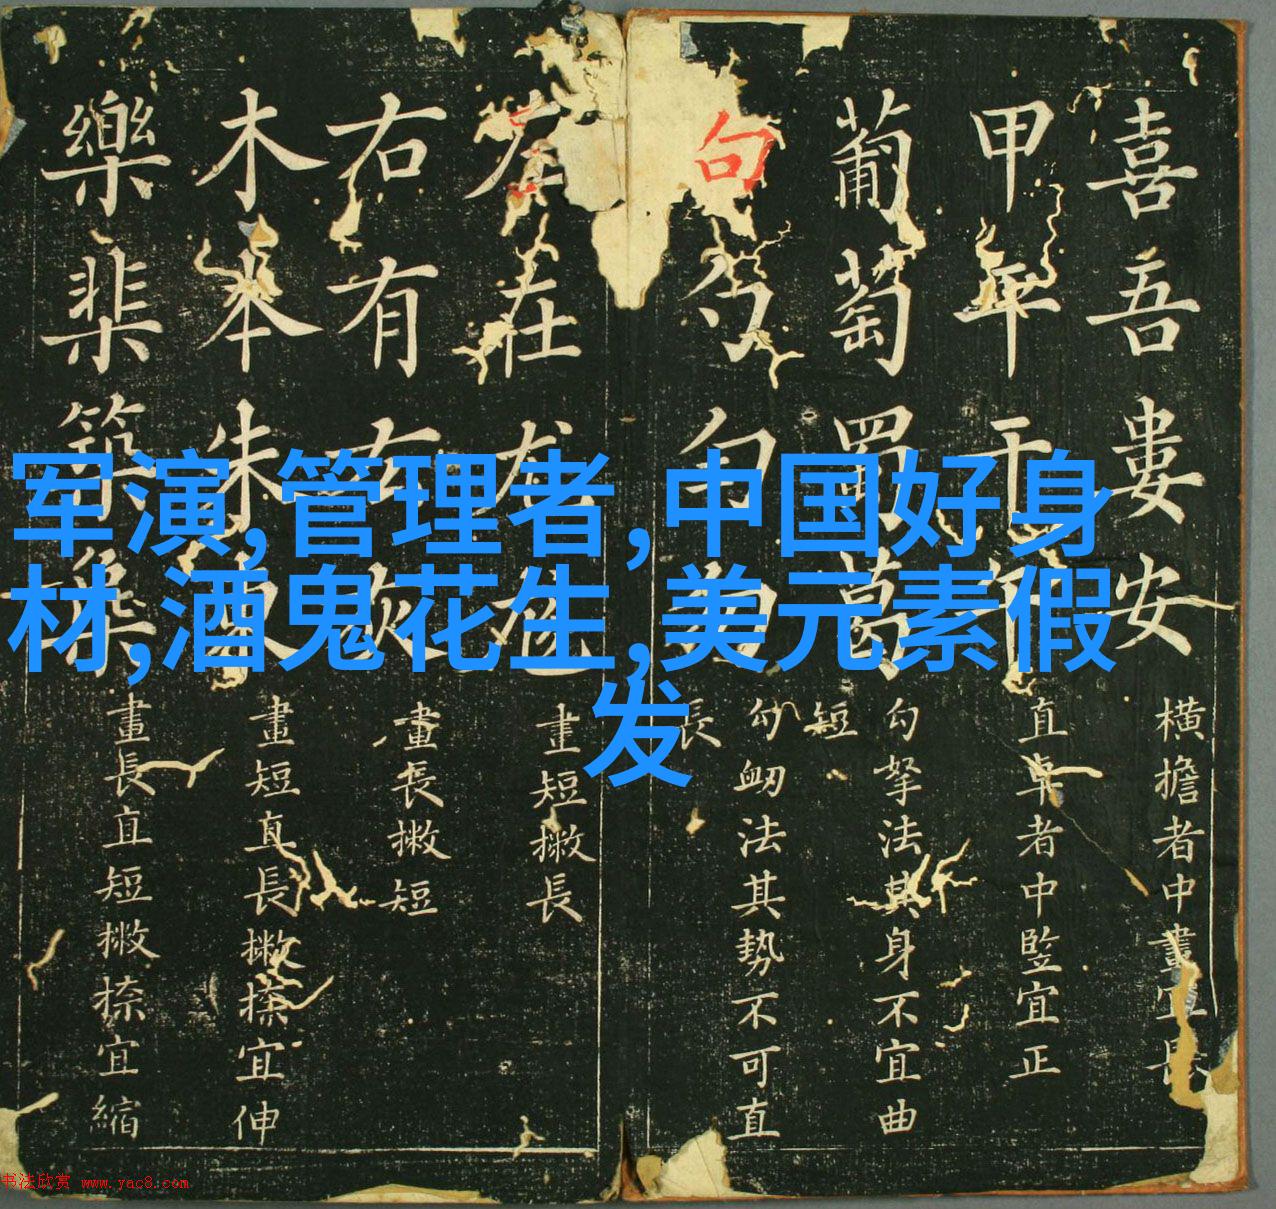 喜吾婁安
横擔者中畫宜長
甲平干
直卓者中竪宜正
葡萄蜀葛
勾拏法其身不宜曲
短
句勺勻勿
勾衂法其势不可直
長
左在
畫短撇長
右有
畫長撇短
木本朱東
畫短直長撇捺宜伸
樂棐築
畫長直短撇捺宜縮
军演,管理者,中国好身
材,酒鬼花生,美元素假
发
书法欣赏 www.yac8.com